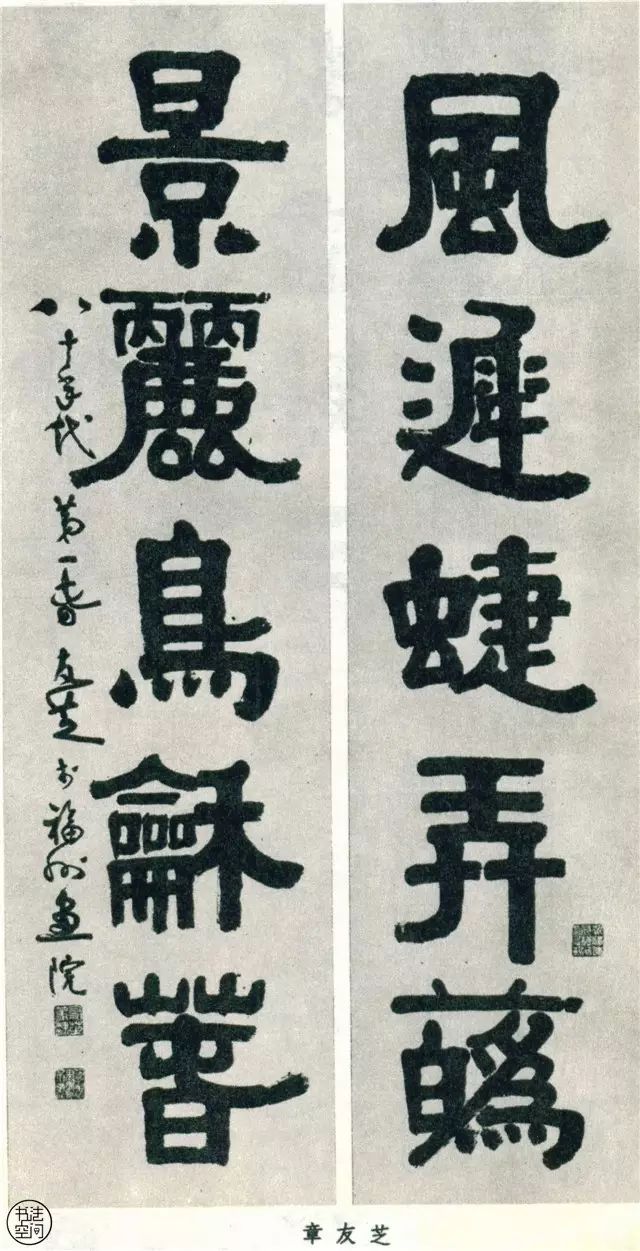 風遲蜨弄蘤
景麗鳥龢萅
八十年代第一春友芝书福州画院
章友芝
书法
空间